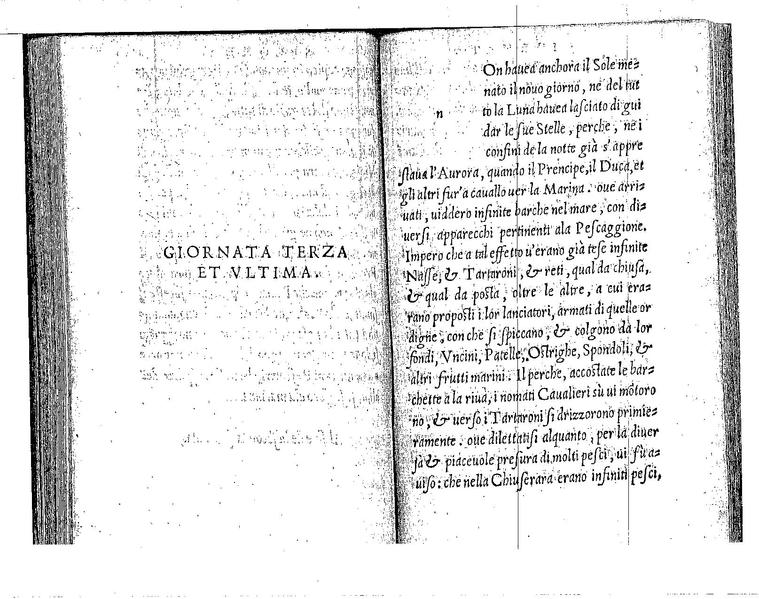 GIORNATA TERZA
ET VLTIMA.
n
On hauea anchora il Sole me=
nato il nouo giorno, nè del tut
to la Luna hauea lasciato di gui
dar le sue Stelle, perche, ne i
confini de la notte già s'appre
staua l'Aurora, quando il Prencipe, il Duca, et
gli altri fur'a cauallo uer la Marina. oue arri=
uati, uiddero infinite barche nel mare, con di=
uersi apparecchi pertinenti ala Pescaggione.
Impero che a tal effetto u'erano già tese infinite
Nasse, & Tartaroni, & reti, qual da chiusa,
& qual da posta, oltre le altre, a cui era=
rano proposti i lor lanciatori, armati di quelle or
digne, con che si spiccano, & colgono da lor
fondi, Vncini, Patelle, Ostrighe, Spondoli, &
altri frutti marini. Il perche, accostate le bar=
chette a la riua, i nomati Caualieri sù ui mōtoro
no, & uerso i Tartaroni si drizzorono primie=
ramente. oue dilettatisi alquanto, per la diuer
sa & piaceuole presura di molti pesci, ui fu a=
uiso: che nella Chiuserara erano infiniti pesci,